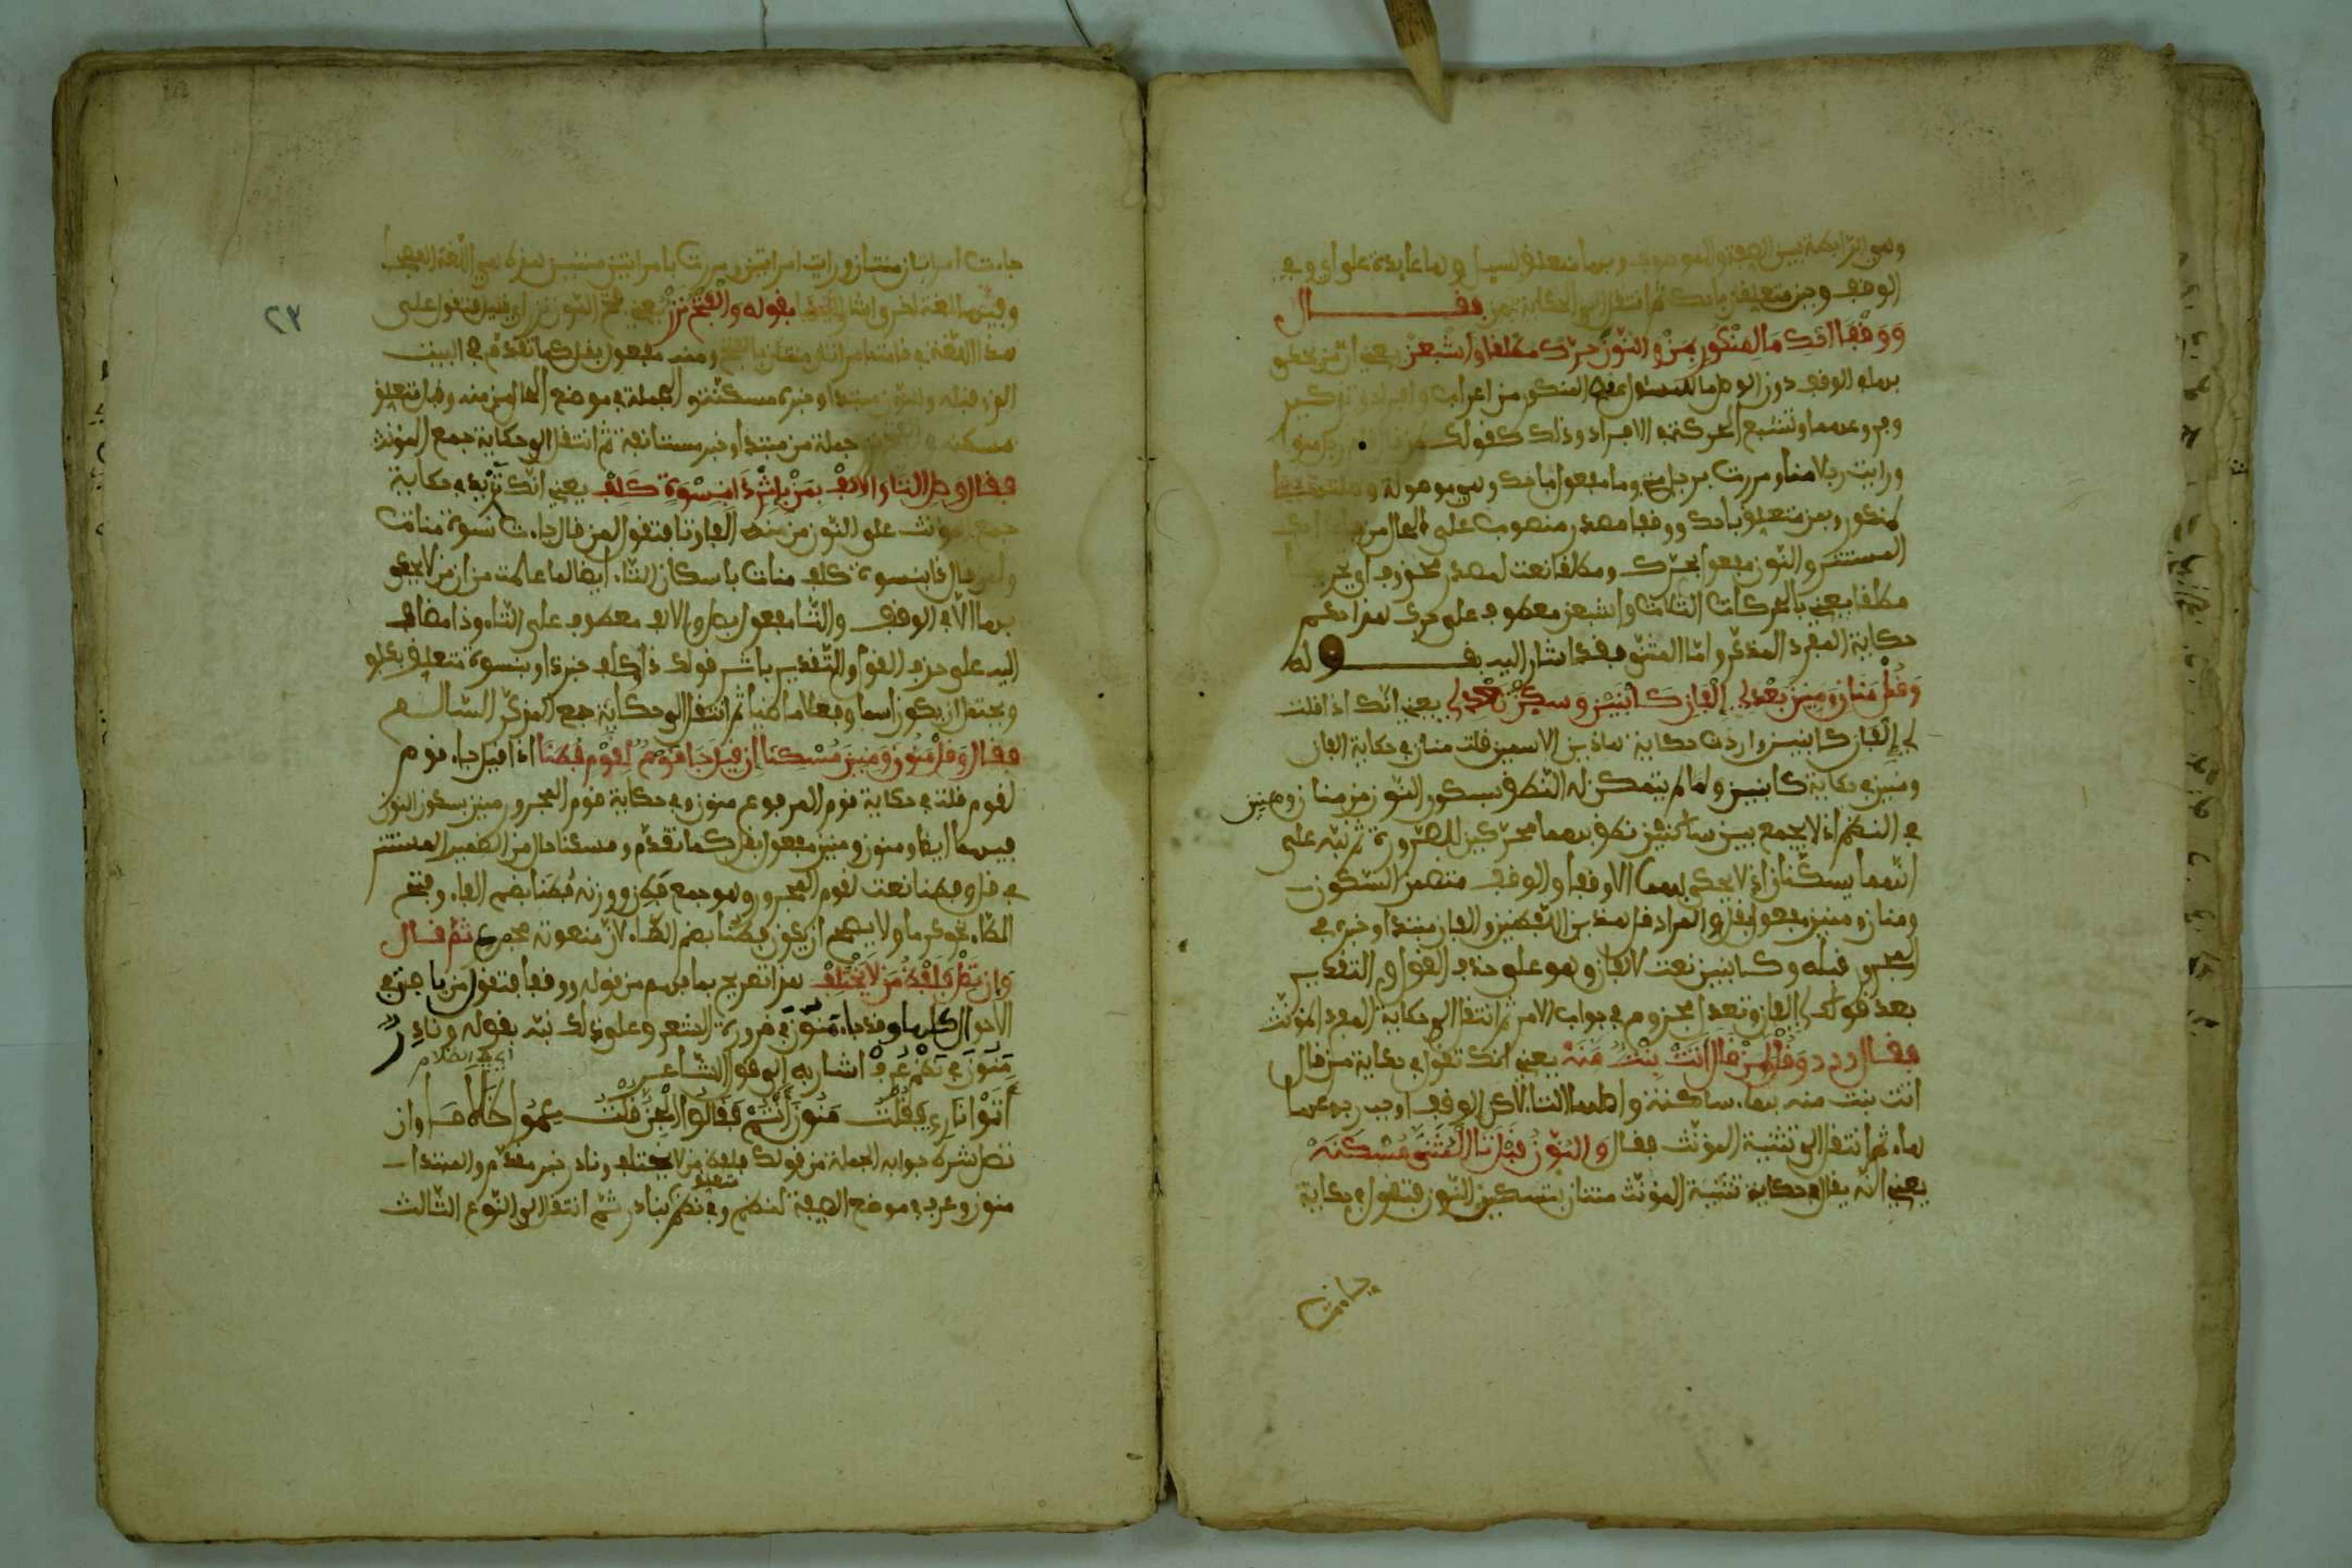 وهي الرابطة بين الصفة والموصوف وبها متعلق بسيل والهاء عايدة على اي وفي
الوقف وبمن متعلق باحك ثم انتقل الى الحكاية بمن فقال
ووقفا احك ما لمنكور بمن والنون حرك مطلقا واشبعن يعني ان من يحكى
بها في الوقف دون الوصل ما للمسئول عنه المنكور من اعراب وافراد وتذكير
وفروعهما وتشبع الحركة في الافراد وذلك كقولك لمن قال رجل منو
ورايت رجلا منا ومررت برجل مني وما مفعول باحك وهي موصولة وصلتها
لمنكور وبمن متعلق باحك ووقفا مصدر منصوب على الحال من
المستتر والنون مفعول بحرك ومطلقا نعت لمصدر محذوف اي تحريكا
مطلقا يعني بالحركات الثلاث واشبعن معطوف على حرك هذا حكم
حكاية المفرد المذكر واما المثنى فقد اشار اليه بقوله
وقل منان ومنين بعد لي الفان كابنين وسكن تعدل يعني انك اذا قلت
لي الفان كابنين واردت حكاية هاذين الاسمين قلت منان في حكاية الفان
ومنين في حكاية كابنين ولما لم يتمكن له النطق بسكون النون من منان ومنين
في النظم اذ لا يجمع بين ساكنين نطق بهما محركين للضرورة ثم نبه على
انهما يسكنان اذ لا يحكى بهما الا وقفا والوقف متضمن السكون
ومنان ومنين مفعول بقل والمراد قل هذين اللفظين والفان مبتدا وخبره في
المجرور قبله وكابنين نعت لالفان وهو على حذف القول والتقدير
بعد قولك لي الفان وتعدل مجزوم في جواب الامر ثم انتقل الى حكاية المفرد المونث
فقال وقل لمن قال اتت بنت منه يعني انك تقول في حكاية من قال
اتت بنت منه بهاء ساكنة واصلها التاء لاكن الوقف اوجب رجوعها
هاء ثم انتقل الى تثنية المونث فقال والنون قبل تا المثنى مسكنه
يعني انه يقال في حكاية تثنية المونث منتان بتسكين النون فتقول في حكاية
جاءت
٢٣
جاءت امراتان منتان ورايت امراتين ومررت بامراتين منتين هذه هي اللغة الفصحى
وفيها لغة اخرى اشار اليها بقوله والفتح نزر يعني فتح النون نزر اي قليل فتقول على
هذه اللغة في قامت امراتان منتان بالفتح ومنه مفعول بقل كما تقدم في البيت
الذي قبله والنون مبتدا وخبره مسكنة والجملة في موضع الحال من منه وقبل متعلق
بمسكنة والفتح نزر جملة من مبتدا وخبر مستانفة ثم انتقل الى حكاية جمع المونث
فقال وصل التا والالف بمن باثر ذا بنسوة كلف يعني انك تزيد في حكاية
جمع المونث على النون من منه الفا وتا فتقول لمن قال جاءت نسوة منات
ولمن قال ذا بنسوة كلف منات باسكان التاء ايضا لما علمت من ان من لا يحكى
بها الا في الوقف والتا مفعول بصل والالف معطوف على التاء وذا مضاف
اليه على حذف القول والتقدير باثر قولك ذا وكلف خبر ذا وبنسوة متعلق بكلف
ويحتمل ان يكون اسما وفعلا ماضيا ثم انتقل الى حكاية جمع المذكر السالم
فقال وقل منون ومنين مسكنا ان قيل جا قوم لقوم فطنا اذا قيل جاء قوم
لقوم قلت في حكاية قوم المرفوع منون وفي حكاية قوم المجرور منين بسكون النون
فيهما ايضا ومنون ومنين مفعول بقل كما تقدم ومسكنا حال من الضمير المستتر
في قل وفطنا نعت لقوم المجرور وهو جمع فطن ووزنه فطنا بضم الفاء وفتح
الطاء نحو كرما ولا يصح ان يكون فطنا بضم الطاء لان منعوته مجموع ثم قال
وان تصل فلفظ من لا يختلف هذا تصريح بما فهم من قوله ووقفا فتقول من يا فتى في
الاحوال كلها وقد جاء منون في ضرورة الشعر وعلى ذلك نبه بقوله ونادر
منون في نظم عرف اشار به الى قول الشاعر
اتوا ناري فقلت منون انتم فقالوا الجن قلت عموا ظلاما وان
تصل شرط جوابه الجملة من قولك فلفظ من لا يختلف ونادر خبر مقدم والمبتدا
منون وعرف في موضع الصفة لنظم وفي نظم متعلق بنادر ثم انتقل الى النوع الثالث